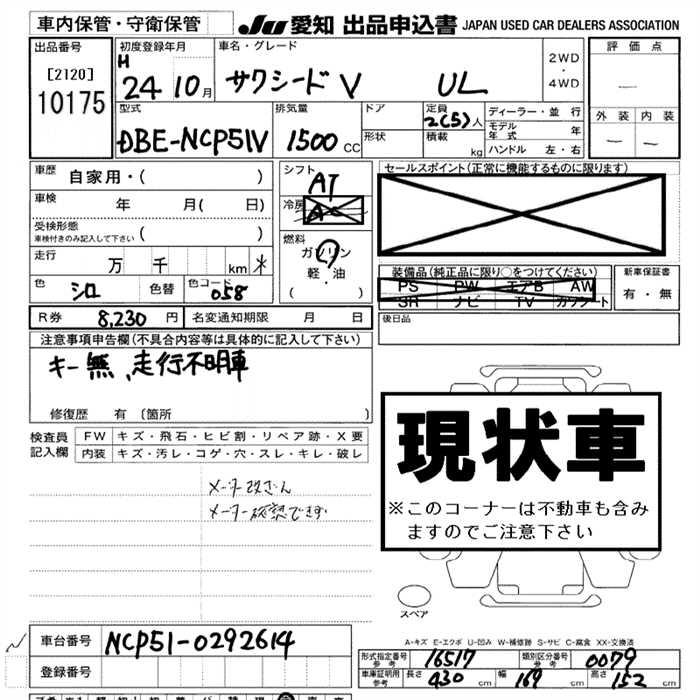 車内保管・守衛保管 JU 愛知 出品申込書 JAPAN USED CAR DEALERS ASSOCIATION
出品番号 [2120] 10175
初度登録年月 H 24 10月
車名・グレード サクシード V UL
2WD・4WD
評価点 —
外装 — 内装 —
型式 DBE-NCP51V
排気量 1500 CC
ドア 形状
定員 2(5)人
積載 kg
ディーラー・並行
モデル年式 年
ハンドル 左・右
車歴 自家用・( )
車検 年 月( 日)
受検形態 車検付きのみ記入して下さい ( )
走行 万 千 km *
色 シロ 色替 色コード 058
シフト AT
冷房 AC
燃料 ガソリン 軽・油 ( )
セールスポイント(正常に機能するものに限ります)
装備品(純正品に限り○をつけてください)
PS PW エアB AW
SR ナビ TV カワシート
新車保証書 有・無
R券 8,230円 名変通知期限 月 日
後日品
注意事項申告欄(不具合内容等は具体的に記入して下さい)
キー無、走行不明車
修復歴 有 〔箇所 〕
検査員記入欄
FW キズ・飛石・ヒビ割・リペア跡・X要
内装 キズ・汚レ・コゲ・穴・スレ・キレ・破レ
メーター改ざん
メーター確認できず
現状車
※このコーナーは不動車も含み
ますのでご注意下さい
スペア
A-キズ E-エクボ U-凹み W-補修跡 S-サビ C-腐食 XX-交換済
車台番号 NCP51-0292614
登録番号
形式指定番号 参考 16517 類別区分番号 参考 0079
車庫証明用 参考 長さ 430 cm 幅 169 cm 高さ 152 cm